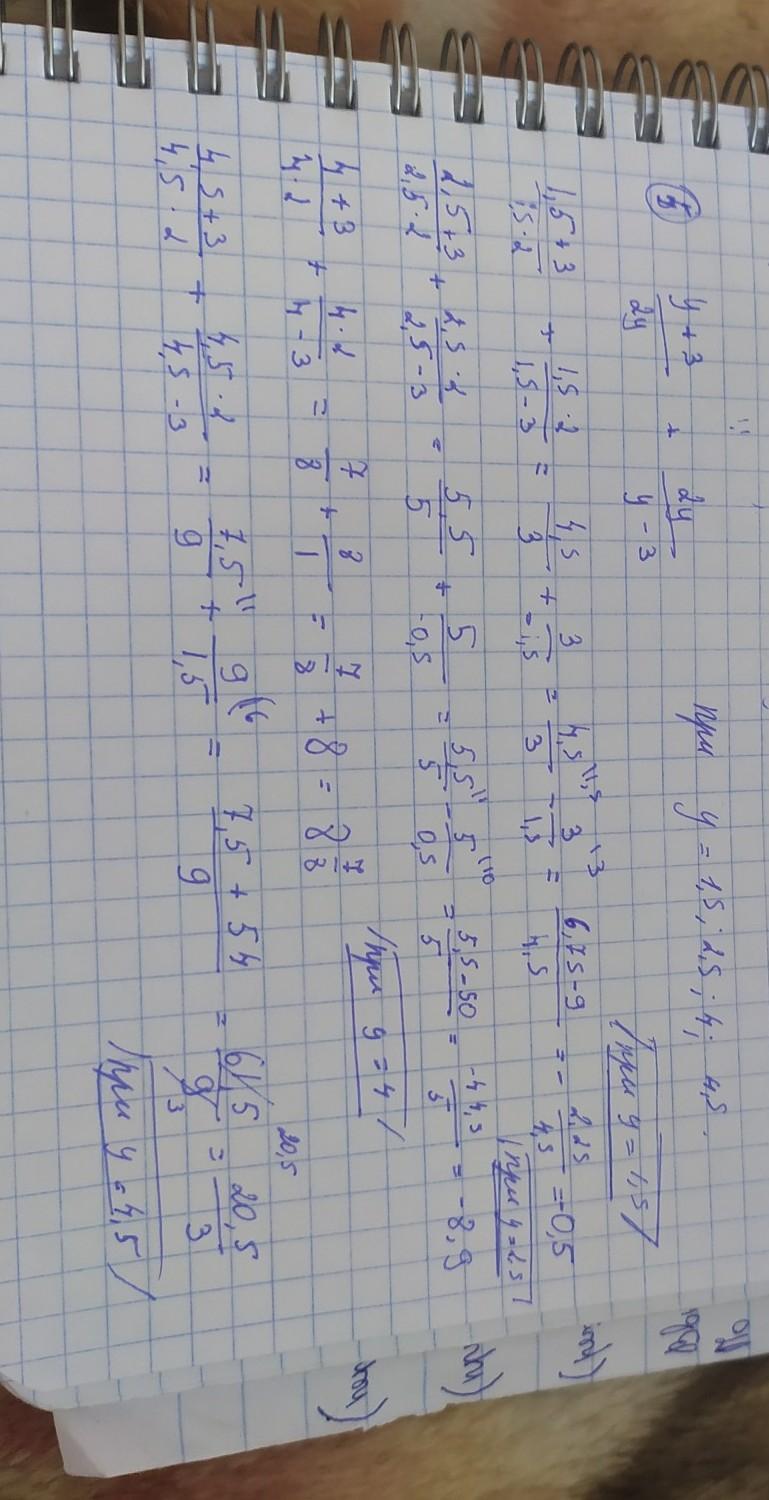 5 (y+3)/2y + 2y/(y-3) при y = 1,5; 2,5; 4; 4,5.
/при y = 1,5/
(1,5+3)/(1,5·2) + (1,5·2)/(1,5-3) = 4,5/3 + 3/-1,5 = 4,5\1,5/3 - 3\3/1,5 = (6,75-9)/4,5 = -2,25/4,5 = -0,5
/при y = 2,5/
(2,5+3)/(2,5·2) + (2,5·2)/(2,5-3) = 5,5/5 + 5/-0,5 = 5,5\1/5 - 5\10/0,5 = (5,5-50)/5 = -44,5/5 = -8,9
(4+3)/(4·2) + (4·2)/(4-3) = 7/8 + 8/1 = 7/8 + 8 = 8 7/8
/при y = 4/
20,5
(4,5+3)/(4,5·2) + (4,5·2)/(4,5-3) = 7,5\1/9 + 9\6/1,5 = (7,5+54)/9 = 61,5/9 = 20,5/3
3
/при y = 4,5/